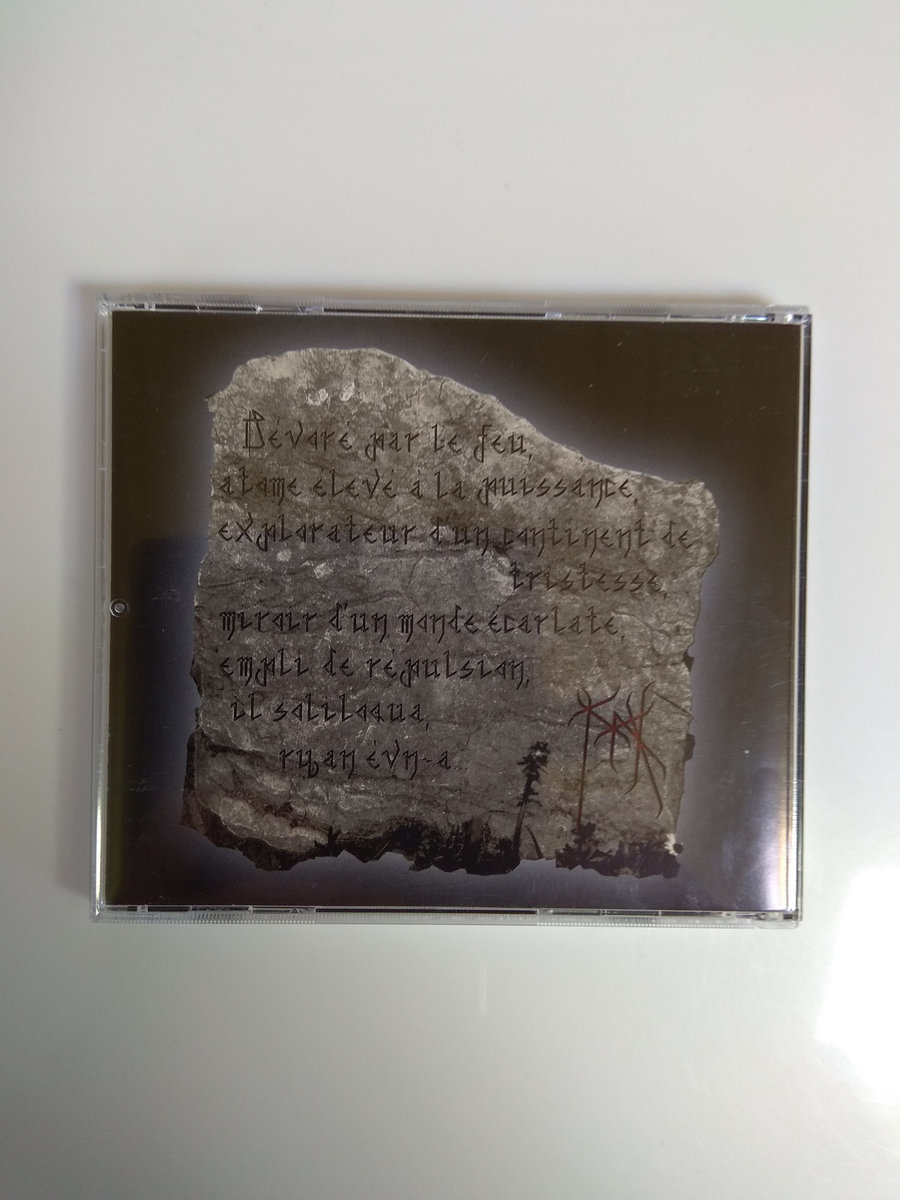 Dévoré par le feu,
atome élevé à la puissance,
explorateur d'un continent de
tristesse,
miroir d'un monde écarlate,
empli de répulsion,
il soliloqua,